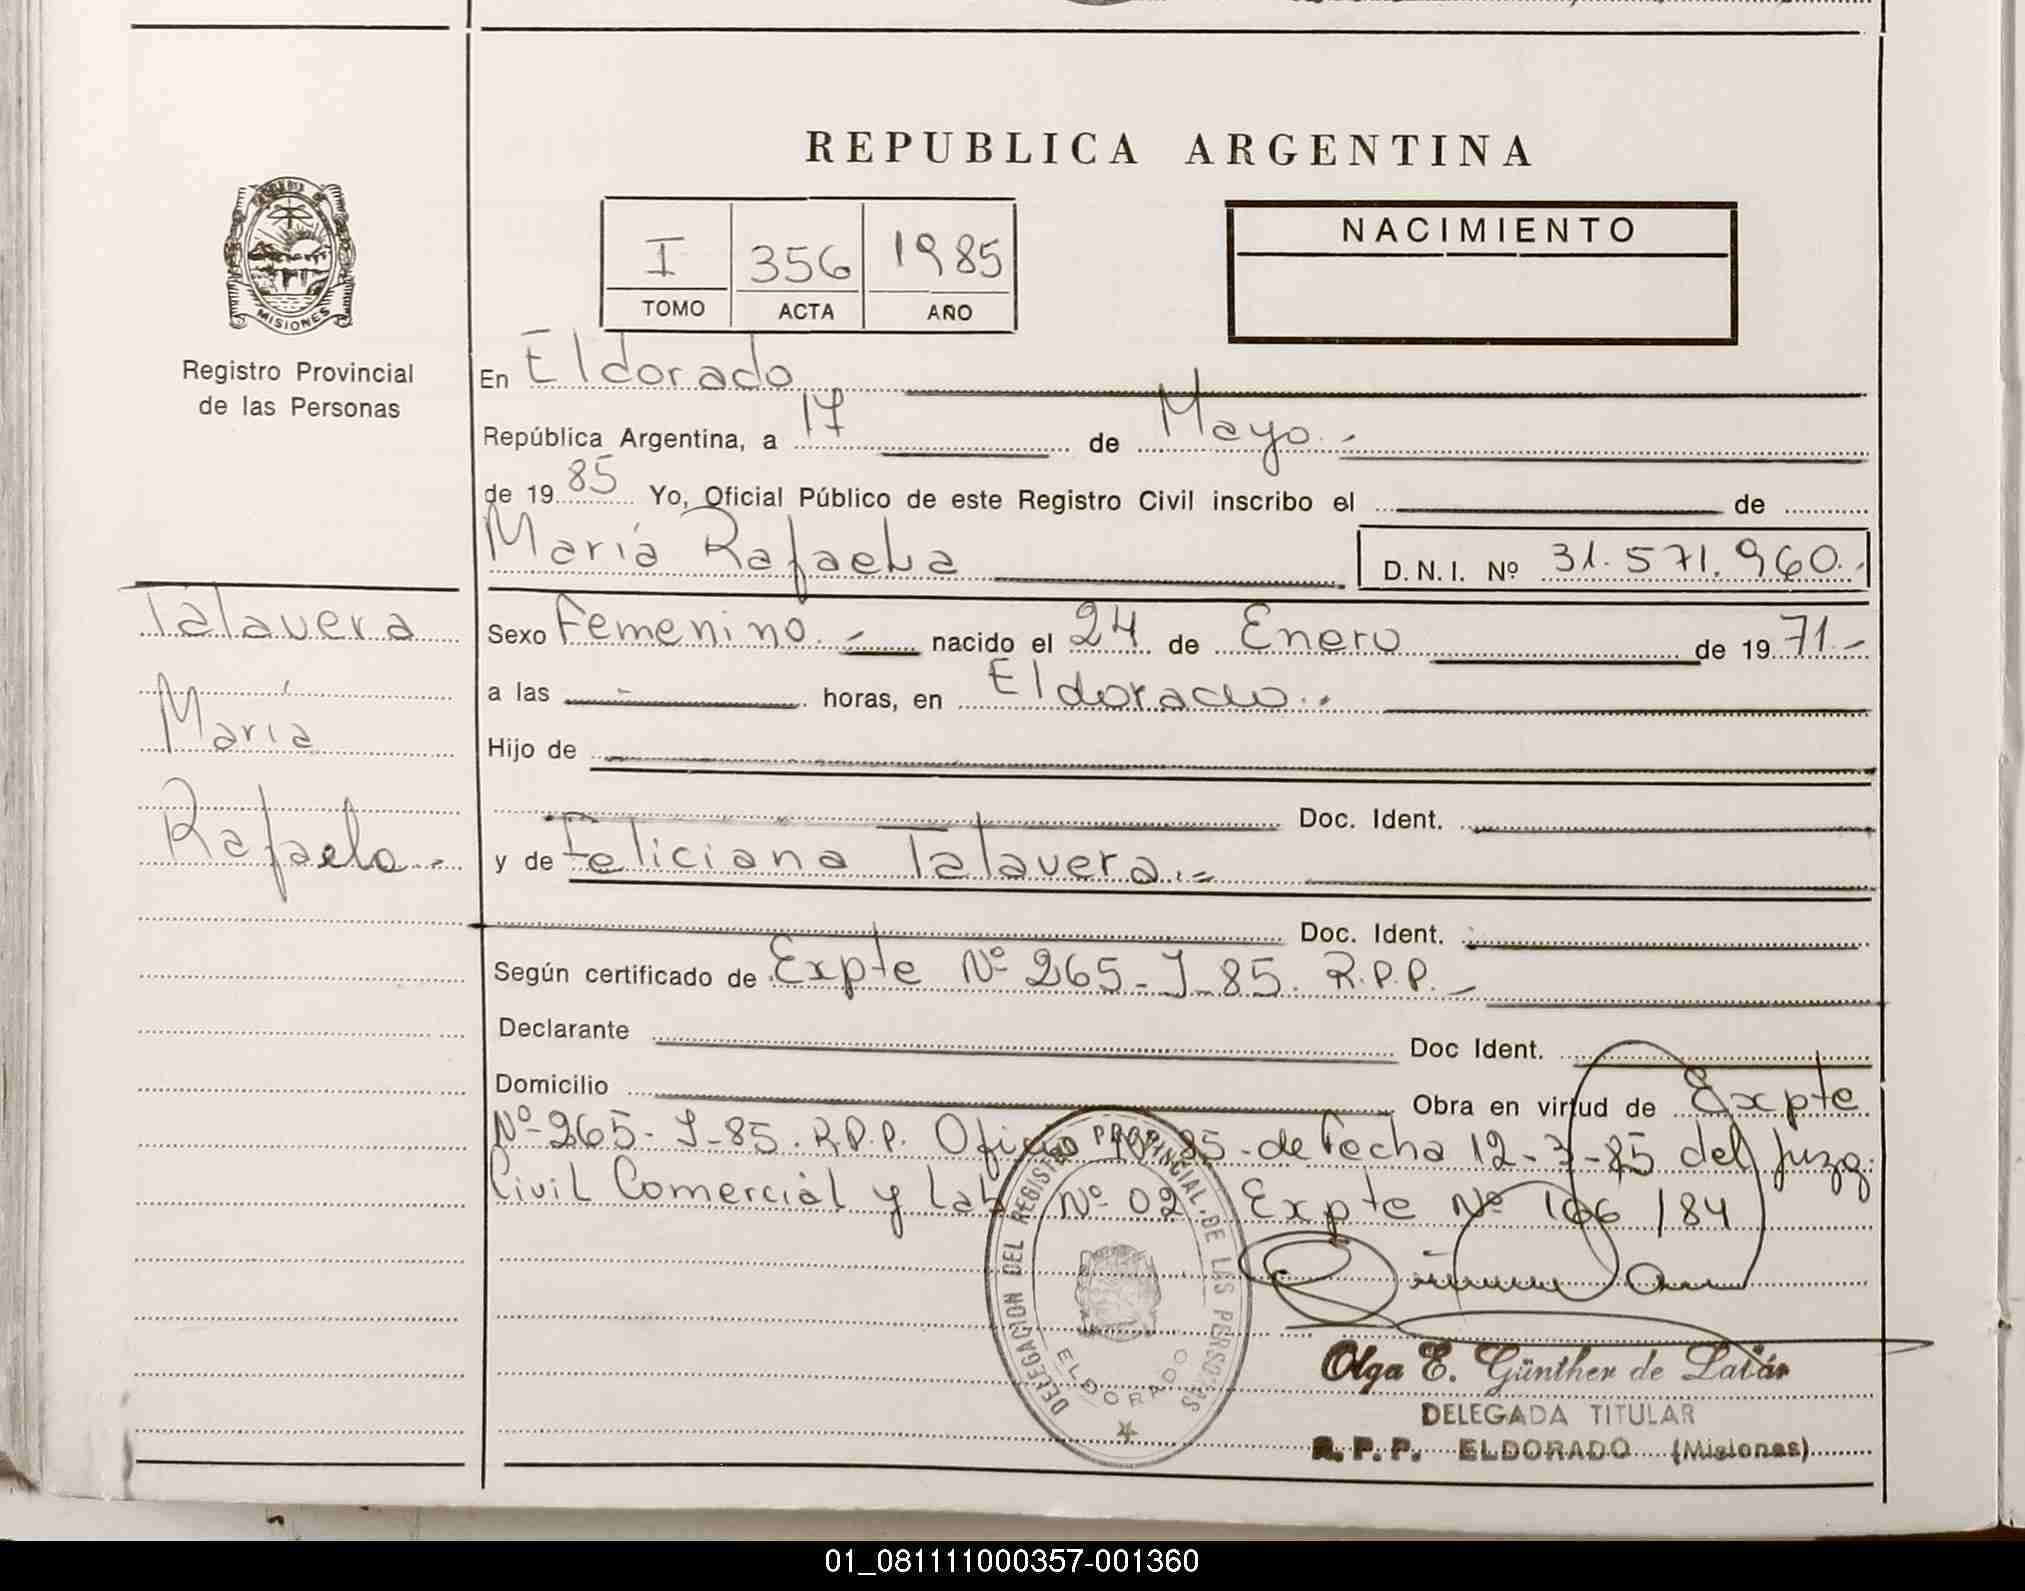 REPUBLICA ARGENTINA
MISIONES
Registro Provincial
de las Personas
I 356 1985
TOMO ACTA AÑO
NACIMIENTO
En Eldorado
República Argentina, a 17 de Mayo.-
de 1985 Yo, Oficial Público de este Registro Civil inscribo el de
María Rafaela D.N.I. Nº 31.571.960.-
Talavera
María
Rafaela.-
Sexo Femenino.- nacido el 24 de Enero de 1971.-
a las - horas, en Eldorado.-
Hijo de
Doc. Ident.
y de Feliciana Talavera.-
Doc. Ident.
Según certificado de Expte Nº 265-J-85. R.P.P.-
Declarante Doc Ident.
Domicilio Obra en virtud de Expte
Nº 265-J-85. R.P.P. Oficio 85-de Fecha 12-3-85 del Juzg.
Civil Comercial y Lab. Nº 02 Expte Nº 106/84
DELEGACION DEL REGISTRO PROVINCIAL DE LAS PERSONAS
ELDORADO
Olga E. Günther de
DELEGADA TITULAR
R.P.P. ELDORADO (Misiones)
01_081111000357-001360